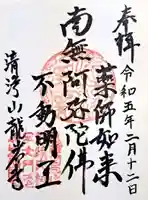 奉拝
令和五年二月十二日
薬師如来
南無阿弥陀佛
不動明王
清瀧山龍岩寺